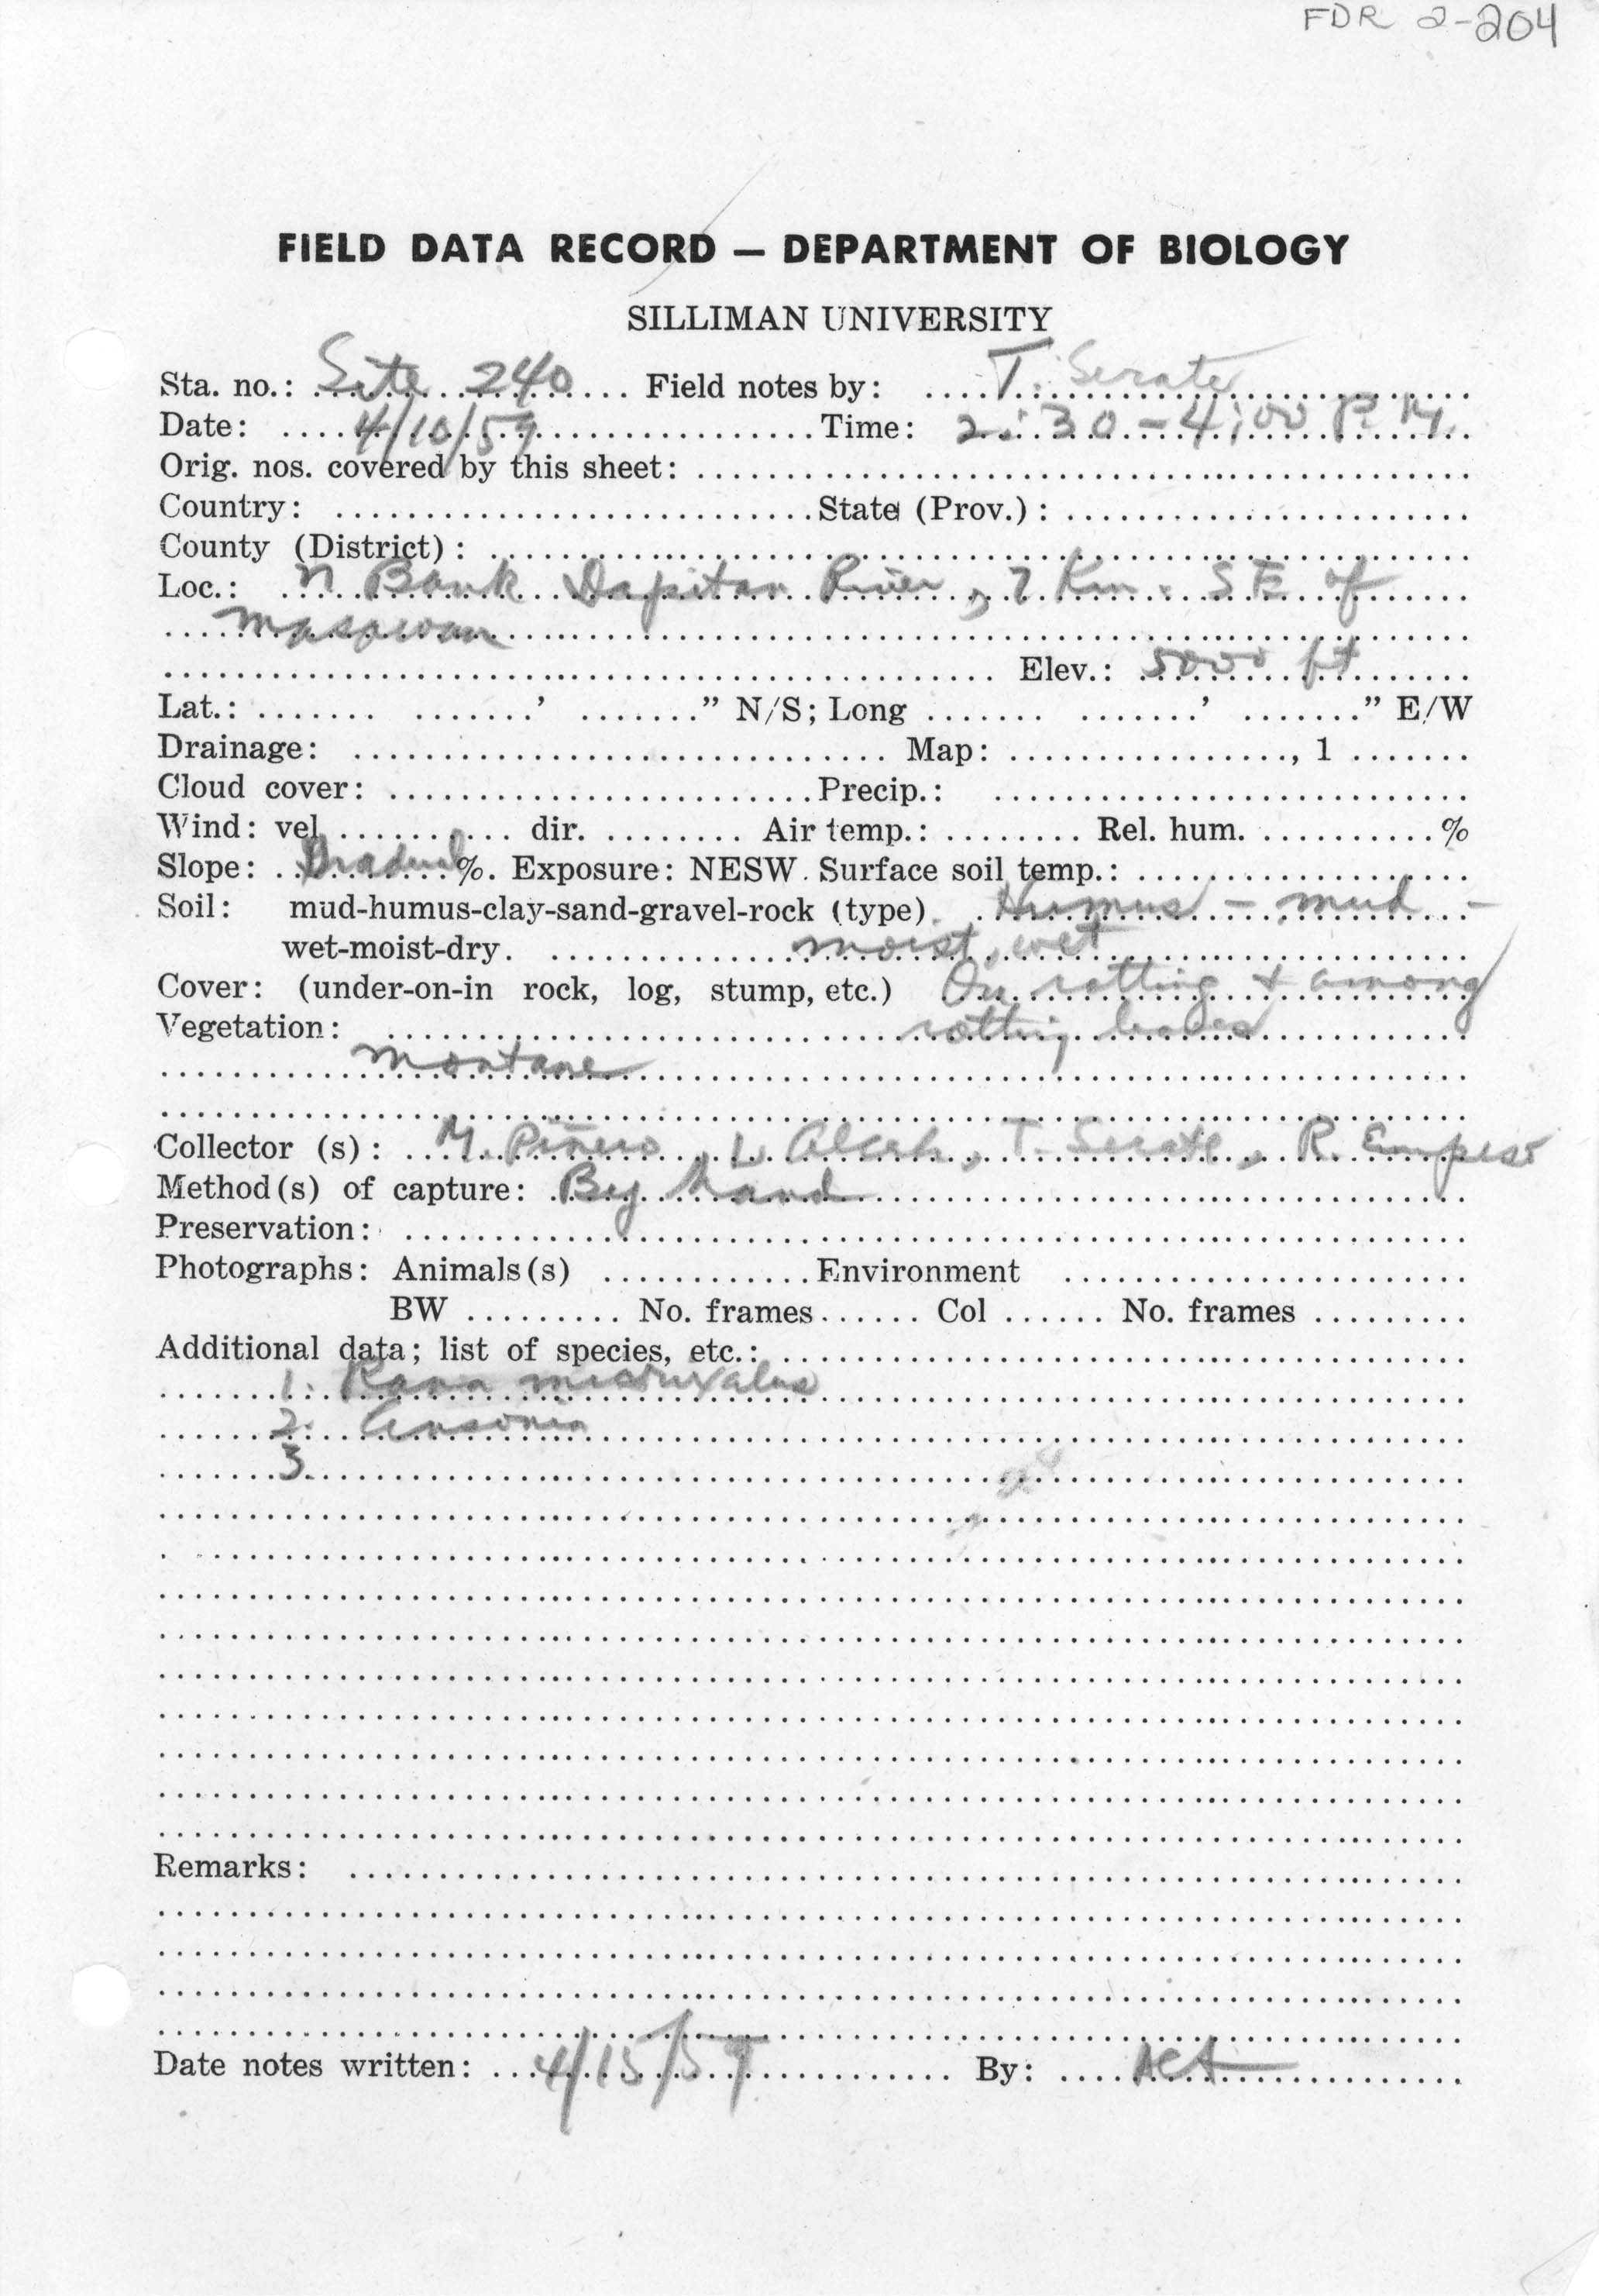 FDR 2-204
FIELD DATA RECORD — DEPARTMENT OF BIOLOGY
SILLIMAN UNIVERSITY
Sta. no.: Site 240 Field notes by: T. Serate
Date: 4/10/59 Time: 2:30-4:00 P.M.
Orig. nos. covered by this sheet:
Country: State (Prov.):
County (District):
Loc.: N Bank Dapitan River, 7 Km. SE of
Masawan
Elev.: 5000 ft
Lat.: ' " N/S; Long ' " E/W
Drainage: Map: , 1
Cloud cover: Precip.:
Wind: vel. dir. Air temp.: Rel. hum. %
Slope: Gradual %. Exposure: NESW. Surface soil temp.:
Soil: mud-humus-clay-sand-gravel-rock (type) Humus - mud -
wet-moist-dry. moist, wet
Cover: (under-on-in rock, log, stump, etc.) On rotting & among
Vegetation: rotting leaves
montane
Collector (s): M. Piñero, L. Alcala, T. Serate, R. Empeso
Method(s) of capture: By hand
Preservation:
Photographs: Animals(s) Environment
BW No. frames Col No. frames
Additional data; list of species, etc.:
1. Rana
2. Ansonia
3.
Remarks:
Date notes written: 4/15/59 By: ACA